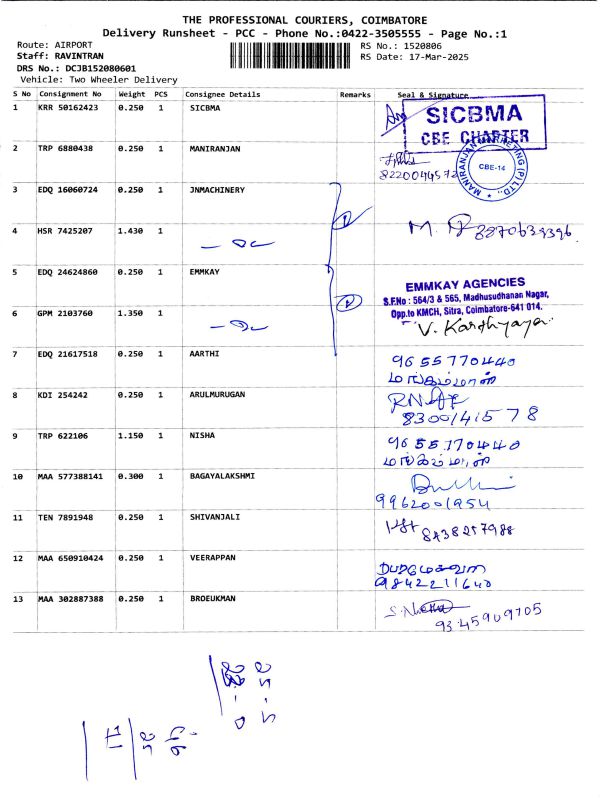 THE PROFESSIONAL COURIERS, COIMBATORE
Delivery Runsheet - PCC - Phone No.:0422-3505555 - Page No.:1
Route: AIRPORT
RS No.: 1520806
Staff: RAVINTRAN
RS Date: 17-Mar-2025
DRS No.: DCJB152080601
Vehicle: Two Wheeler Delivery
S No Consignment No Weight PCS Consignee Details Remarks Seal & Signature
1 KRR 50162423 0.250 1 SICBMA
SICBMA
CBE CHAPTER
2 TRP 6880438 0.250 1 MANIRANJAN
MANIRANJAN MARKETING (P) LTD.,
CBE-14
8220044572
3 EDQ 16060724 0.250 1 JNMACHINERY
4 HSR 7425207 1.430 1
8870639396
5 EDQ 24624860 0.250 1 EMMKAY
EMMKAY AGENCIES
S.F.No : 564/3 & 565, Madhusudhanan Nagar,
Opp.to KMCH, Sitra, Coimbatore-641 014.
6 GPM 2103760 1.350 1
V. Karthyaya
7 EDQ 21617518 0.250 1 AARTHI 9655770440
8 KDI 254242 0.250 1 ARULMURUGAN
8300141578
9 TRP 622106 1.150 1 NISHA 9655770440
10 MAA 577388141 0.300 1 BAGAYALAKSHMI
9962001954
11 TEN 7891948 0.250 1 SHIVANJALI
8438257988
12 MAA 650910424 0.250 1 VEERAPPAN
9842211640
13 MAA 302887388 0.250 1 BROEUKMAN
9345909705